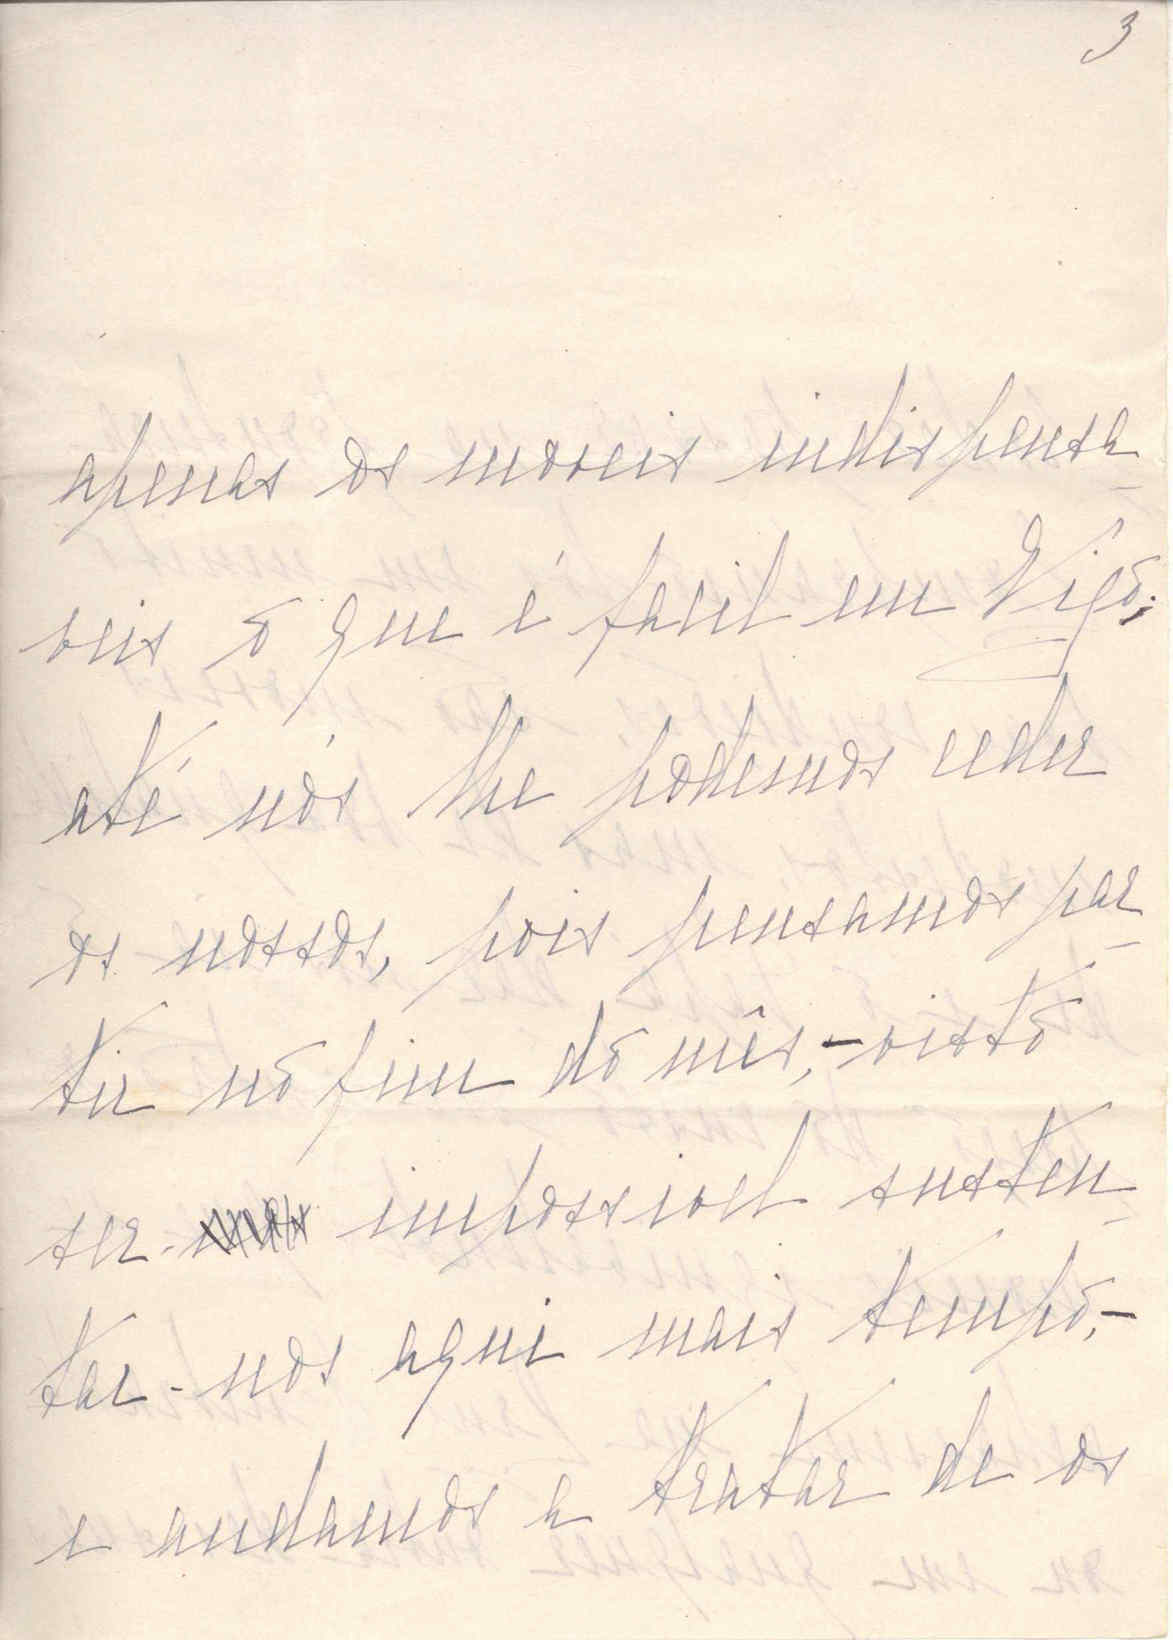 3
apenas os moveis indispensa-
veis o que é facil em Vigo;
até nós lhe podemos ceder
os nossos, pois pensamos par-
tir no fim do mês, - visto
ser-nos impossivel susten-
tar-nos aqui mais tempo, -
e andamos a tratar de os